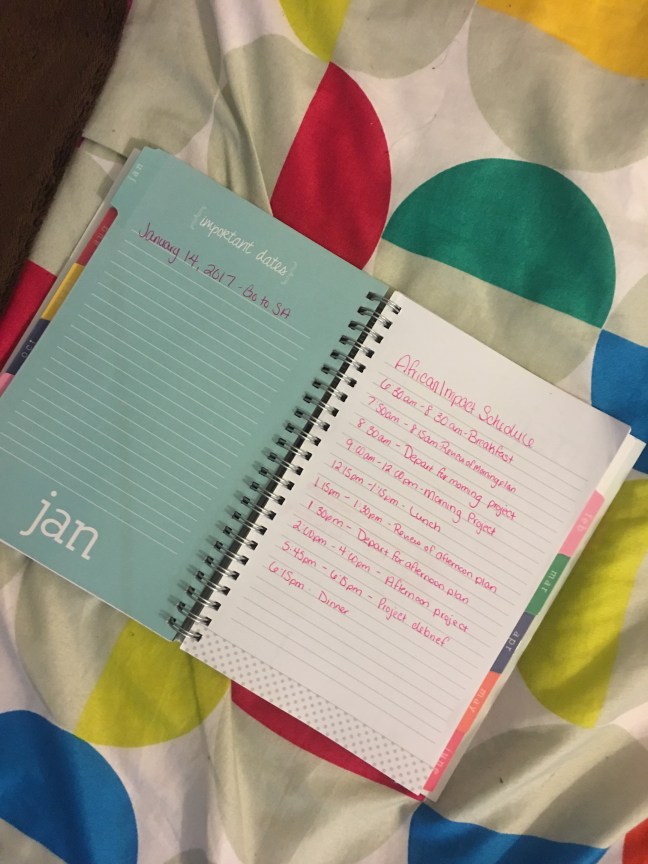 {important dates}
January 14, 2017 - Go to SA
jan
African Impact Schedule
6:30am - 8:30am - Breakfast
7:50am - 8:15am Review of Morning plan
8:30am - Depart for morning project
9:00am - 12:00pm - Morning Project
12:15pm - 1:15pm - Lunch
1:15pm - 1:30pm - Review of afternoon plan
1:30pm - Depart for afternoon plan
2:00pm - 4:00pm - Afternoon project
5:45pm - 6:15pm - Project debrief
6:15pm - Dinner
oct
feb
mar
apr
may
june